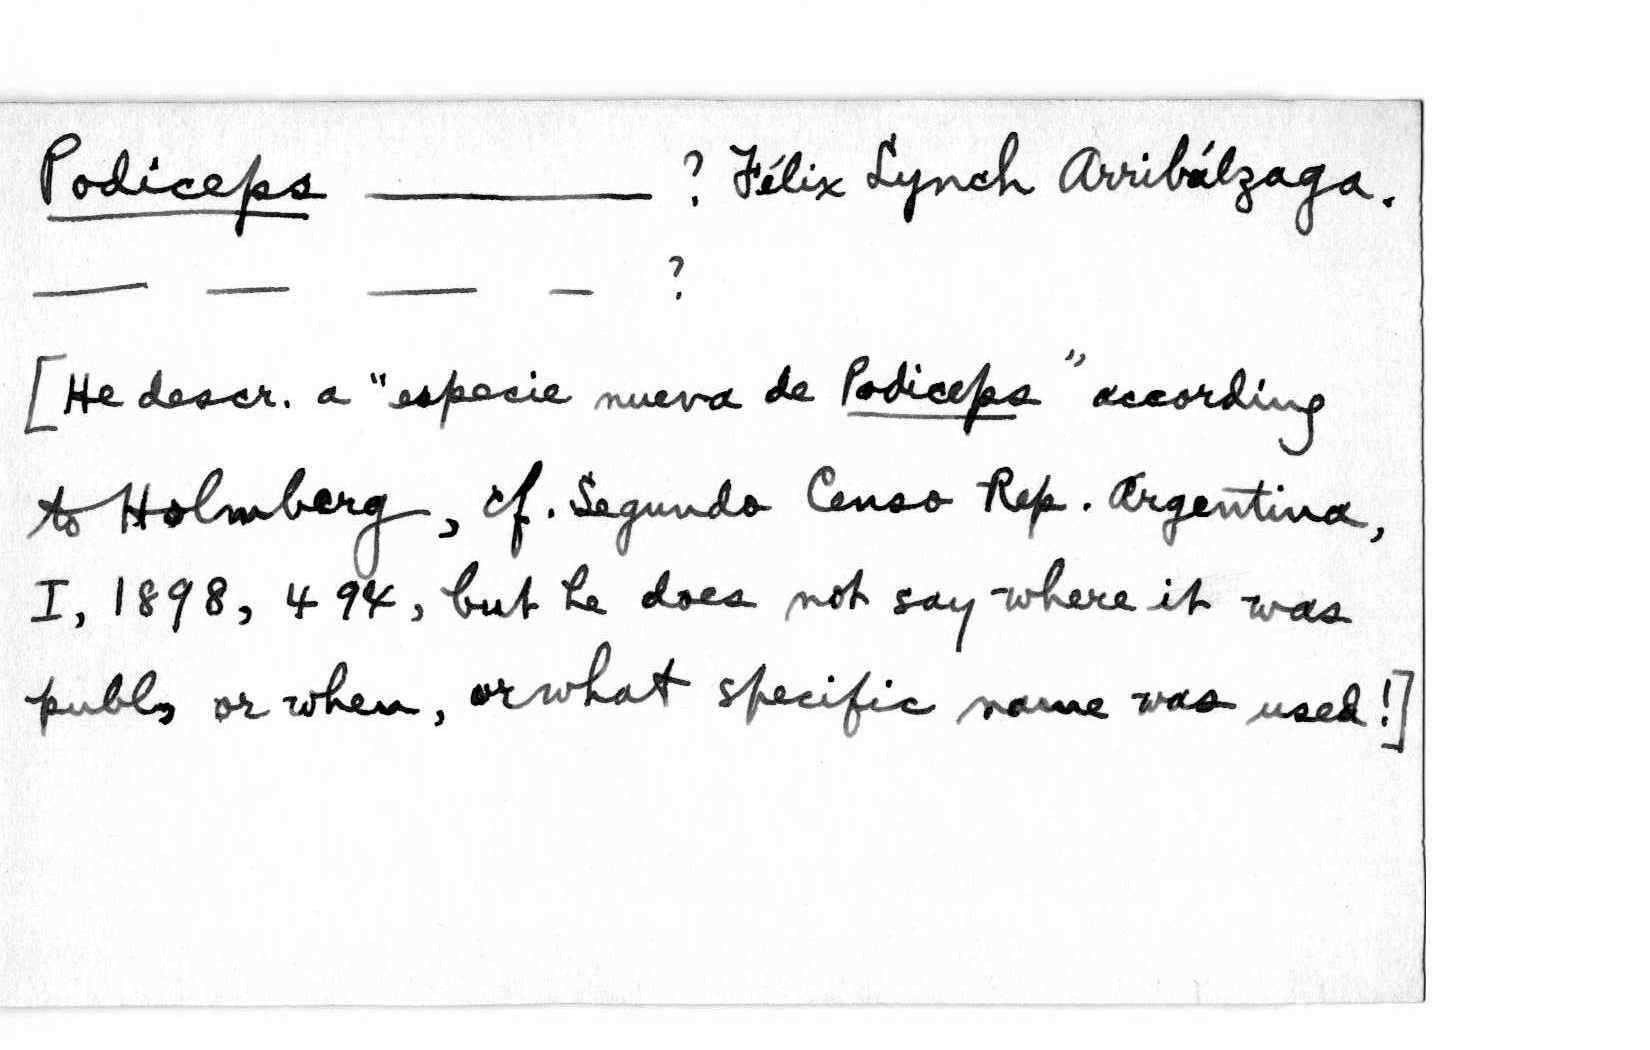 Podiceps ———— ? Félix Lynch Arribálzaga.
— — — — ?
[He descr. a "especie nueva de Podiceps" according
to Holmberg, cf. Segundo Censo Rep. Argentina,
I, 1898, 494, but he does not say where it was
publ., or when, or what specific name was used!]